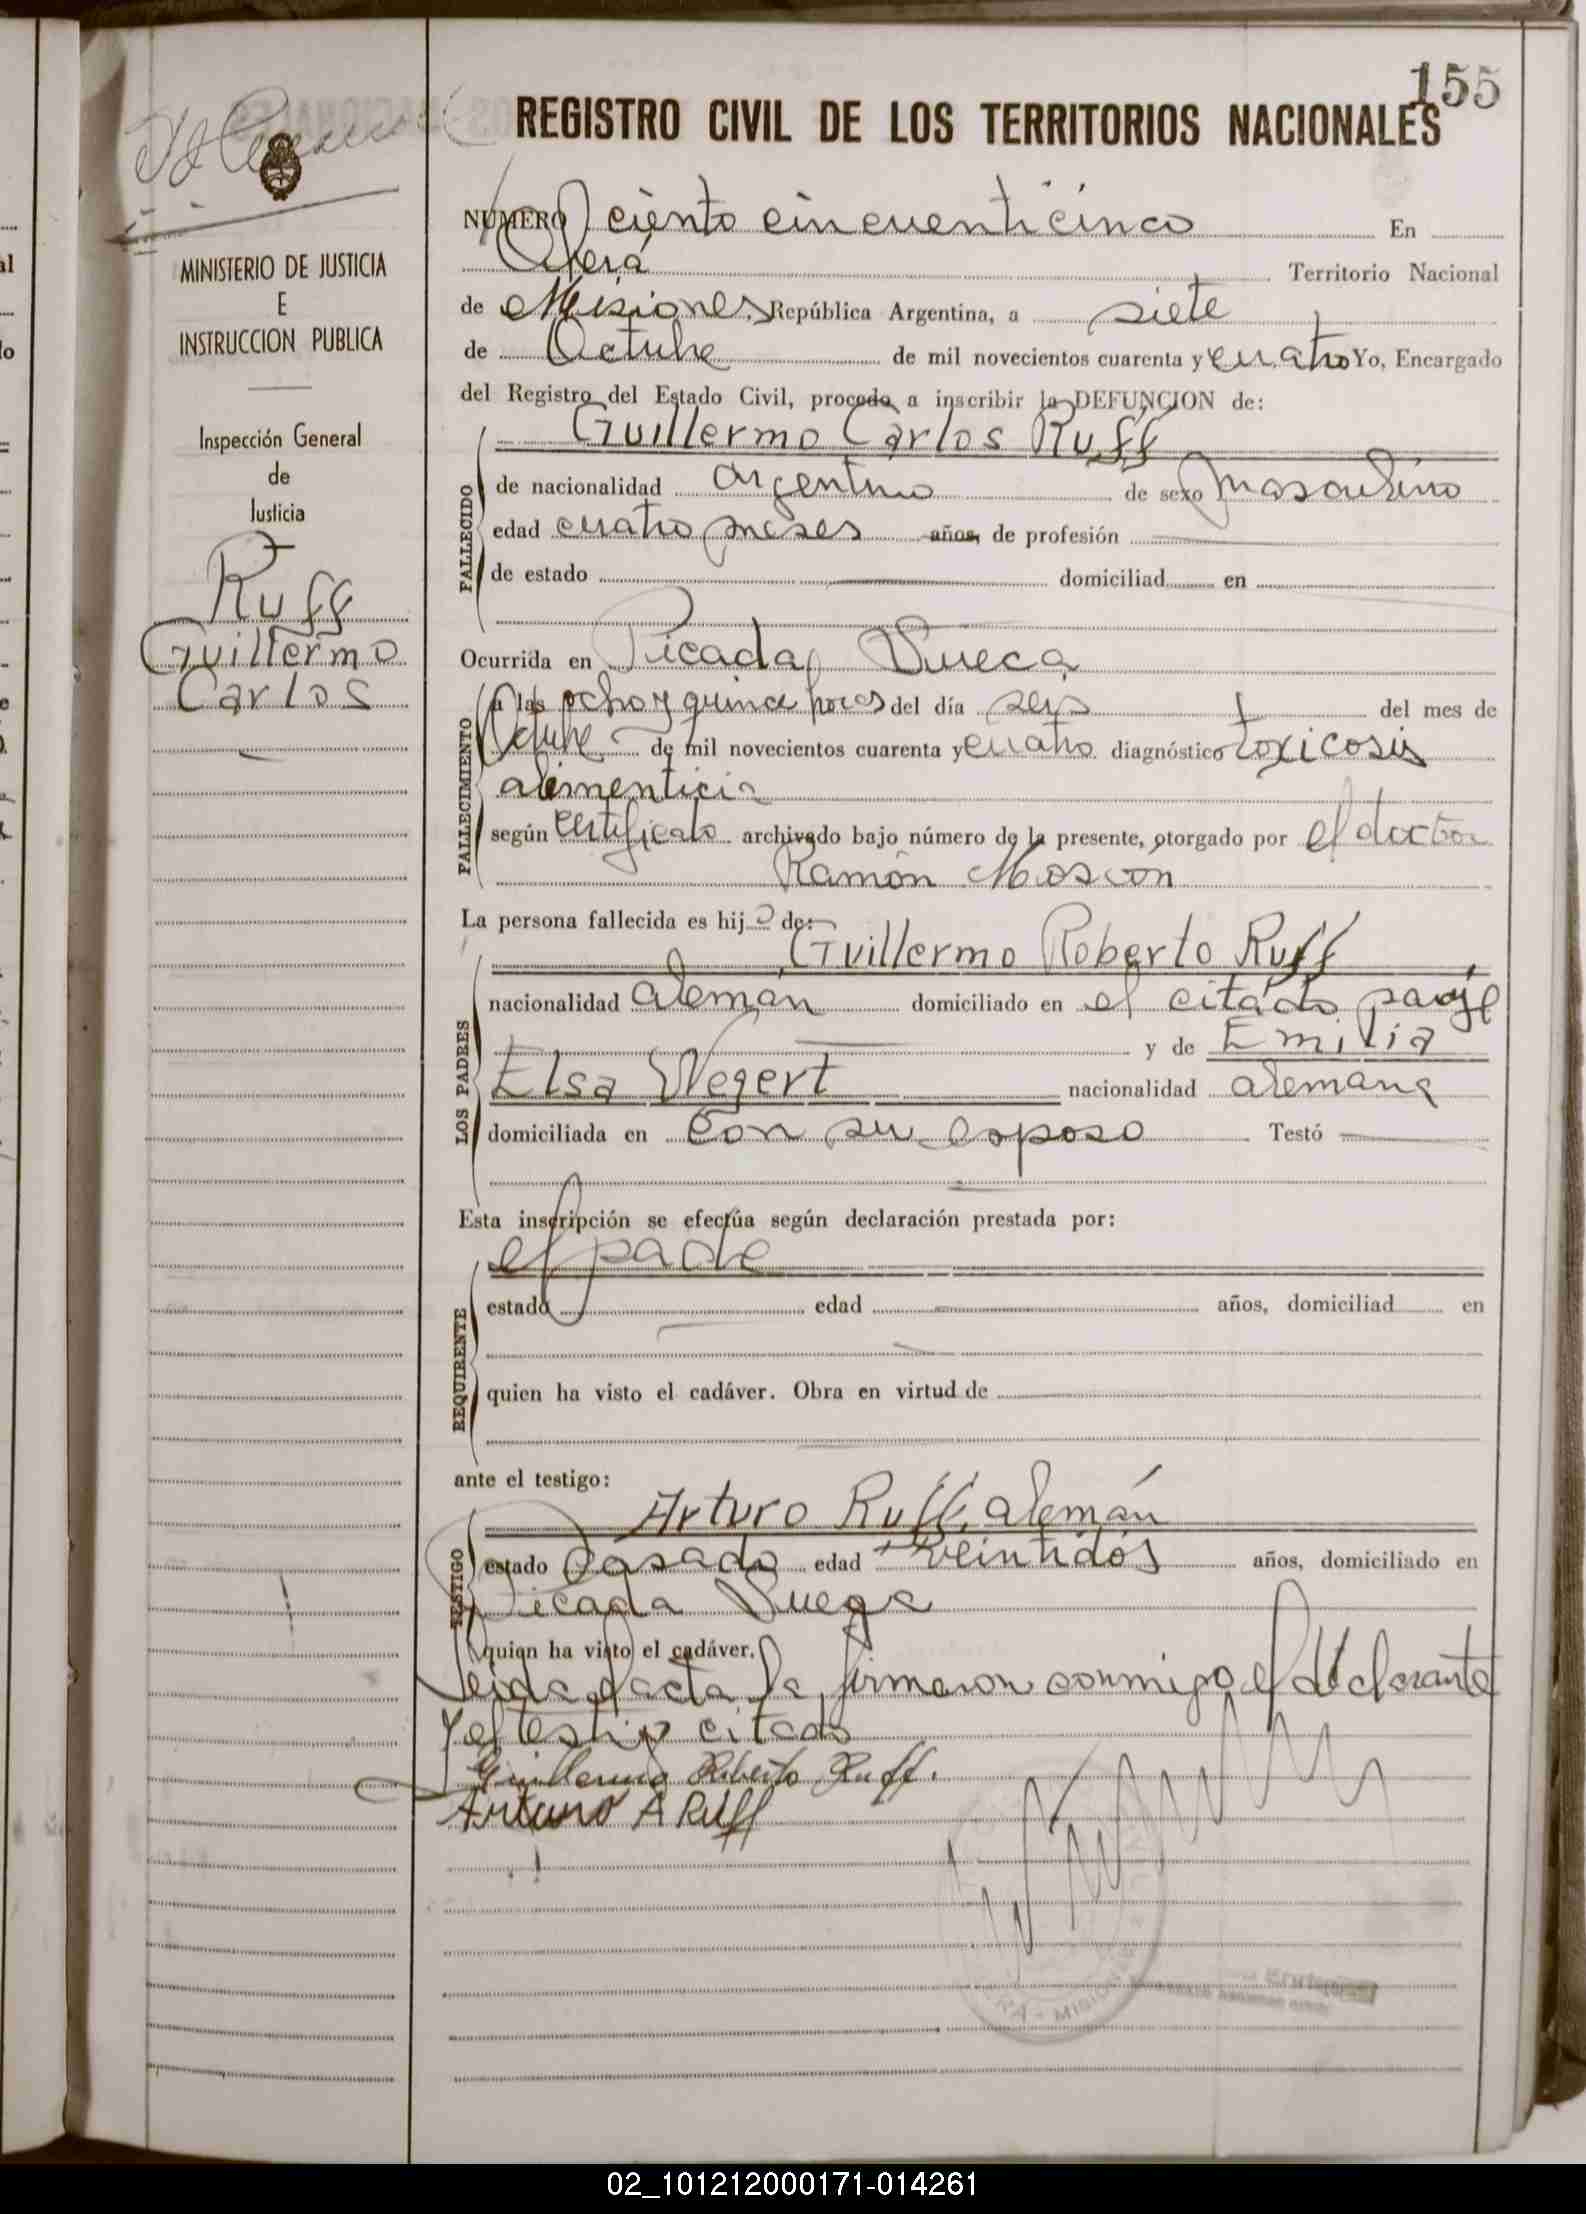 155
REGISTRO CIVIL DE LOS TERRITORIOS NACIONALES
MINISTERIO DE JUSTICIA
E
INSTRUCCION PUBLICA
Inspección General
de
Justicia
Ruff
Guillermo
Carlos
NUMERO ciento cincuenticinco En
Oberá Territorio Nacional
de Misiones, República Argentina, a siete
de Octubre de mil novecientos cuarenta y cuatro Yo, Encargado
del Registro del Estado Civil, procedo a inscribir la DEFUNCION de:
Guillermo Carlos Ruff
FALLECIDO
de nacionalidad argentino de sexo masculino
edad cuatro meses años, de profesión
de estado domiciliad en
Ocurrida en Picada Sueca
FALLECIMIENTO
a las ocho y quince horas del día seis del mes de
Octubre de mil novecientos cuarenta y cuatro diagnóstico toxicosis
alimenticia
según certificato archivado bajo número de la presente, otorgado por el doctor
Ramón
La persona fallecida es hijo de:
Guillermo Roberto Ruff
LOS PADRES
nacionalidad alemán domiciliado en el citado paraje
y de Emilia
Elsa Wegert nacionalidad alemana
domiciliada en con su esposo Testó
Esta inscripción se efectúa según declaración prestada por:
el padre
REQUIRENTE
estado edad años, domiciliad en
quien ha visto el cadáver. Obra en virtud de
ante el testigo:
Arturo Ruff, alemán
TESTIGO
estado casado edad veintidós años, domiciliado en
Picada Sueca
quien ha visto el cadáver.
Leida el acta la firmaron conmigo el declarante
y el testigo citado
Guillermo Roberto Ruff.
Arturo A Ruff
02_101212000171-014261